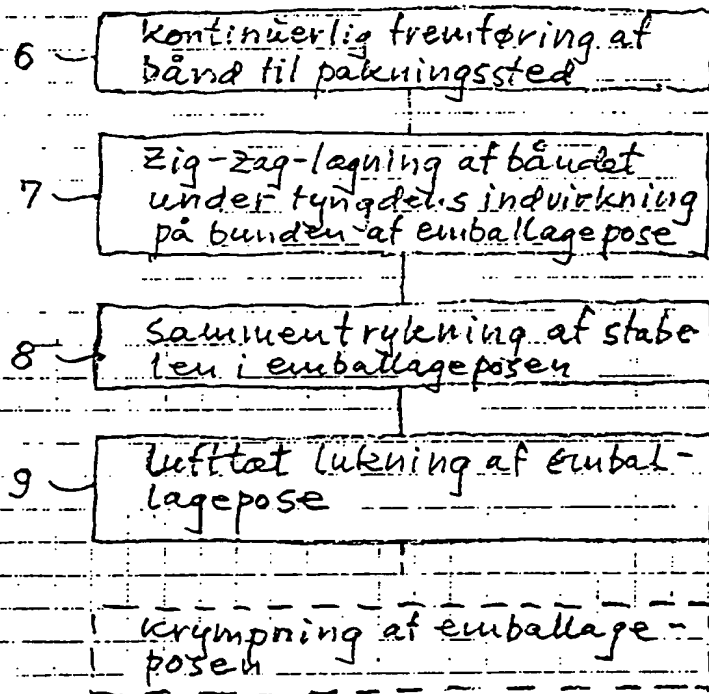 6 kontinuerlig fremføring af
bånd til pakningssted
7 Zig-zag-lægning af båndet
under tyngdens indvirkning
på bunden af emballagepose
8 sammentrykning af stabe
len i emballageposen
9 lufttæt lukning af embal-
lagepose
krympning af emballage-
posen